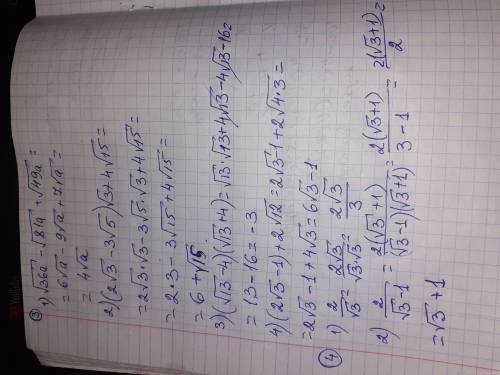 ③ 1) √36a - √81a + √49a =
= 6√a - 9√a + 7√a =
= 4√a
2) (2√3 - 3√5)√3 + 4√15 =
= 2√3·√3 - 3√5·√3 + 4√15 =
= 2·3 - 3√15 + 4√15 =
= 6 + √15
3) (√13 - 4)(√13 + 4) = √13·√13 + 4√13 - 4√13 - 16 =
= 13 - 16 = -3
4) (2√3 - 1) + 2√12 = 2√3 - 1 + 2√4·3 =
= 2√3 - 1 + 4√3 = 6√3 - 1
④ 1) 2/√3 = 2√3/√3·√3 = 2√3/3
2) 2/√3-1 = 2(√3+1)/(√3-1)(√3+1) = 2(√3+1)/3-1 = 2(√3+1)/2 =
= √3 + 1